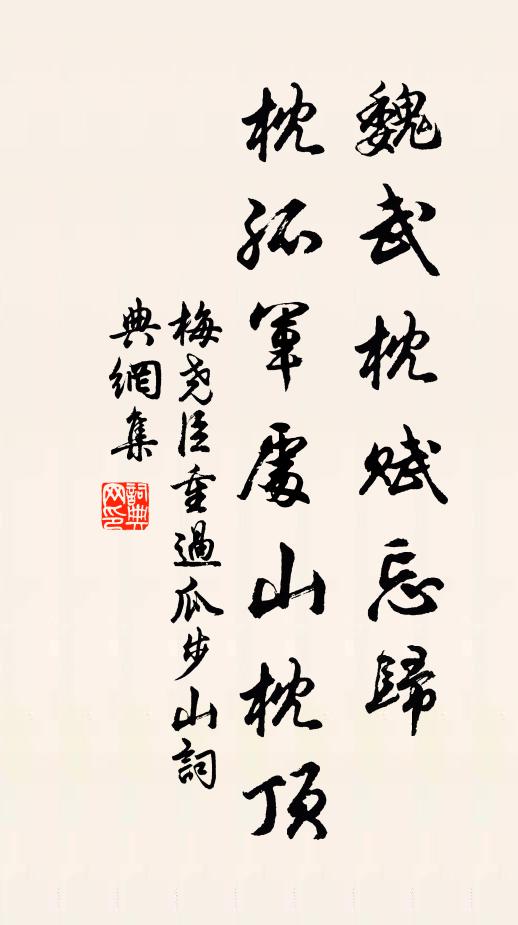 魏武枕賦忘歸
枕孤軍處山枕頂
梅尧臣重過瓜步山詞
典網集
詞典
网印